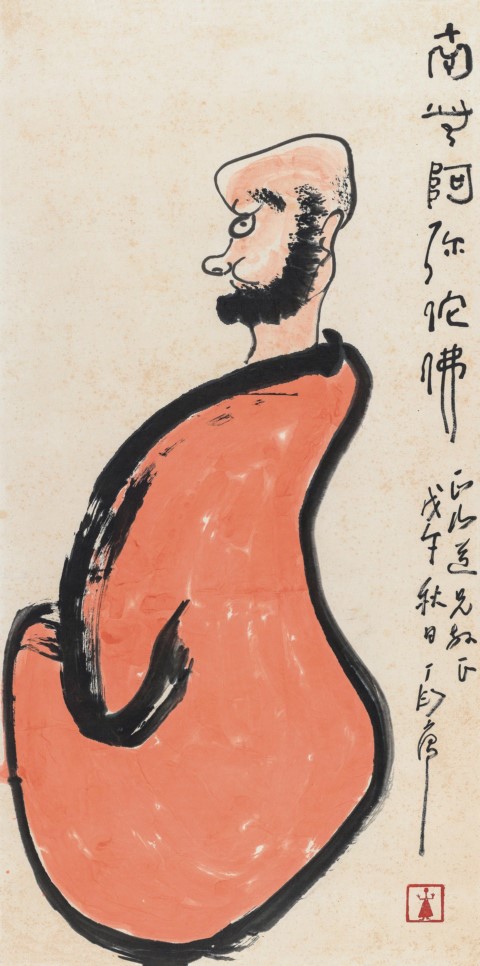 南無阿弥陀佛
道兄教正
戊午秋日丁衍庸